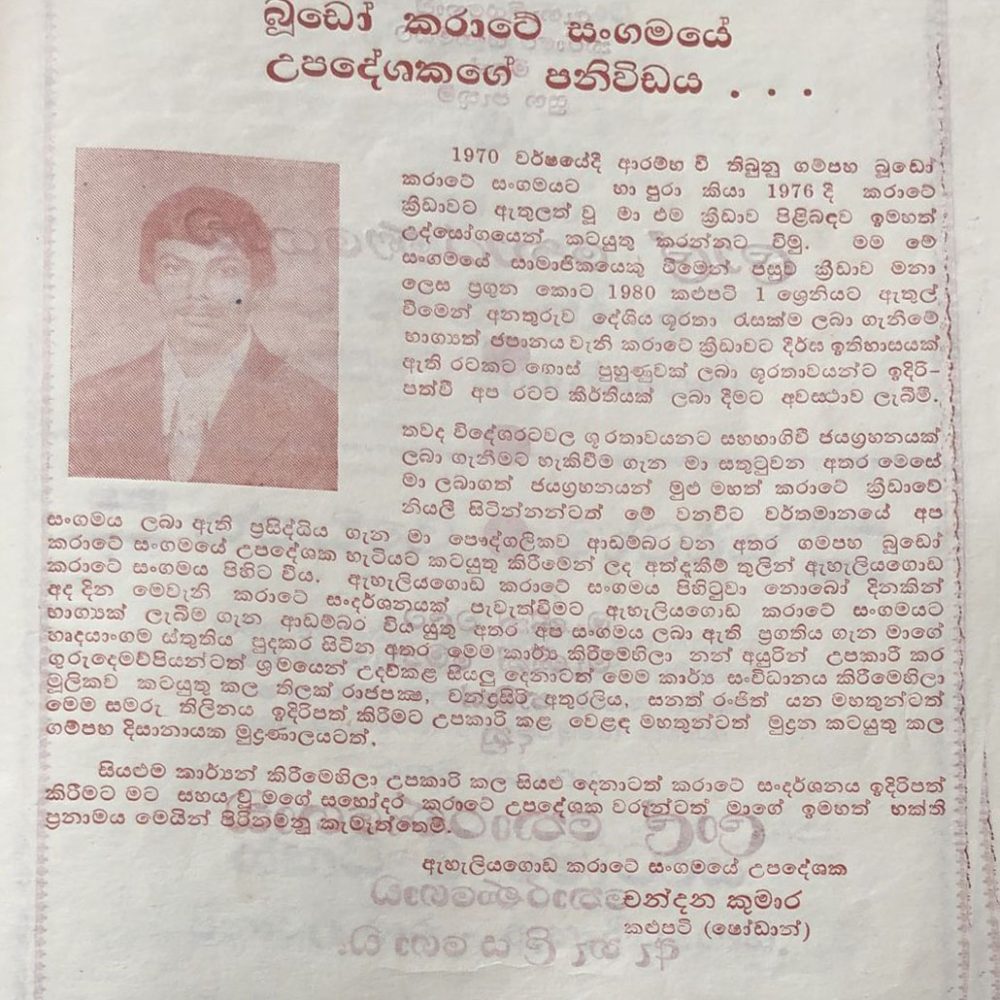 බූඩෝ කරාටේ සංගමයේ
උපදේශකගේ පනිවිඩය . . .
1970 වර්ෂයේදී ආරම්භ වී තිබුනු ගම්පහ බූඩෝ
කරාටේ සංගමයට හා පුරා කියා 1976 දී කරාටේ
ක්‍රීඩාවට ඇතුලත් වූ මා එම ක්‍රීඩාව පිළිබඳව ඉමහත්
උද්යෝගයෙන් කටයුතු කරන්නට විමු. මම මේ
සංගමයේ සාමාජිකයෙකු වීමෙන් පසුව ක්‍රීඩාව මනා
ලෙස ප්‍රගුන කොට 1980 කළුපටි 1 ශ්‍රේනියට ඇතුල්
වීමෙන් අනතුරුව දේශිය ශූරතා රැසක්ම ලබා ගැනීමේ
භාග්‍යත් ජපානය වැනි කරාටේ ක්‍රීඩාවට දීර්ඝ ඉතිහාසයක්
ඇති රටකට ගොස් පුහුණුවක් ලබා ශූරතාවයන්ට ඉදිරි-
පත්වී අප රටට කීර්තියක් ලබා දීමට අවස්ථාව ලැබීමි.
තවද විදේශරටවල ශූරතාවයනට සහභාගිවී ජයග්‍රහනයක්
ලබා ගැනීමට හැකිවීම ගැන මා සතුටුවන අතර මෙසේ
මා ලබාගත් ජයග්‍රහනයන් මුළු මහත් කරාටේ ක්‍රීඩාවේ
නියලී සිටින්නන්ටත් මේ වනවිට වර්තමානයේ අප
සංගමය ලබා ඇති ප්‍රසිද්ධිය ගැන මා පෞද්ගලිකව ආඩම්බර වන අතර ගම්පහ බූඩෝ
කරාටේ සංගමයේ උපදේශක හැටියට කටයුතු කිරීමෙන් ලද අත්දූකීම් තුලින් ඇහැලියගොඩ
කරාටේ සංගමය පිහිට විය. ඇහැලියගොඩ කරාටේ සංගමය පිහිටුවා නොබෝ දිනකින්
අද දින මෙවැනි කරාටේ සංදර්ශනයක් පැවැත්වීමට ඇහැලියගොඩ කරාටේ සංගමයට
භාග්‍යක් ලැබීම ගැන ආඩම්බර විය යුතු අතර අප සංගමය ලබා ඇති ප්‍රගතිය ගැන මාගේ
හෘදයාංගම ස්තුතිය පුදකර සිටින අතර මෙම කාර්‍ය කිරීමෙහිලා නන් අයුරින් උපකාරී කර
ගුරුදෙමව්පියන්ටත් ශ්‍රමයෙන් උදව්කළ සියලු දෙනාටත් මෙම කාර්‍ය සංවිධානය කිරීමෙහිලා
මූලිකව කටයුතු කල තිලක් රාජපක්‍ෂ, චන්ද්‍රසිරි අතුරලිය, සනත් රංජිත් යන මහතුන්ටත්
මෙම සමරු තිලිනය ඉදිරිපත් කිරීමට උපකාරි කළ වෙළඳ මහතුන්ටත් මුද්‍රන කටයුතු කල
ගම්පහ දිසානායක මුද්‍රණාලයටත්.
සියළුම කාර්‍යන් කිරීමෙහිලා උපකාරි කල සියළු දෙනාටත් කරාටේ සංදර්ශනය ඉදිරිපත්
කිරීමට මට සහය වූ මගේ සහෝදර කරාටේ උපදේශක වරුන්ටත් මාගේ ඉමහත් භක්ති
ප්‍රනාමය මෙයින් පිරිනමනු කැමැත්තෙමි.
ඇහැලියගොඩ කරාටේ සංගමයේ උපදේශක
චන්දන කුමාර
කළුපටි (ෂෝඩාන්)